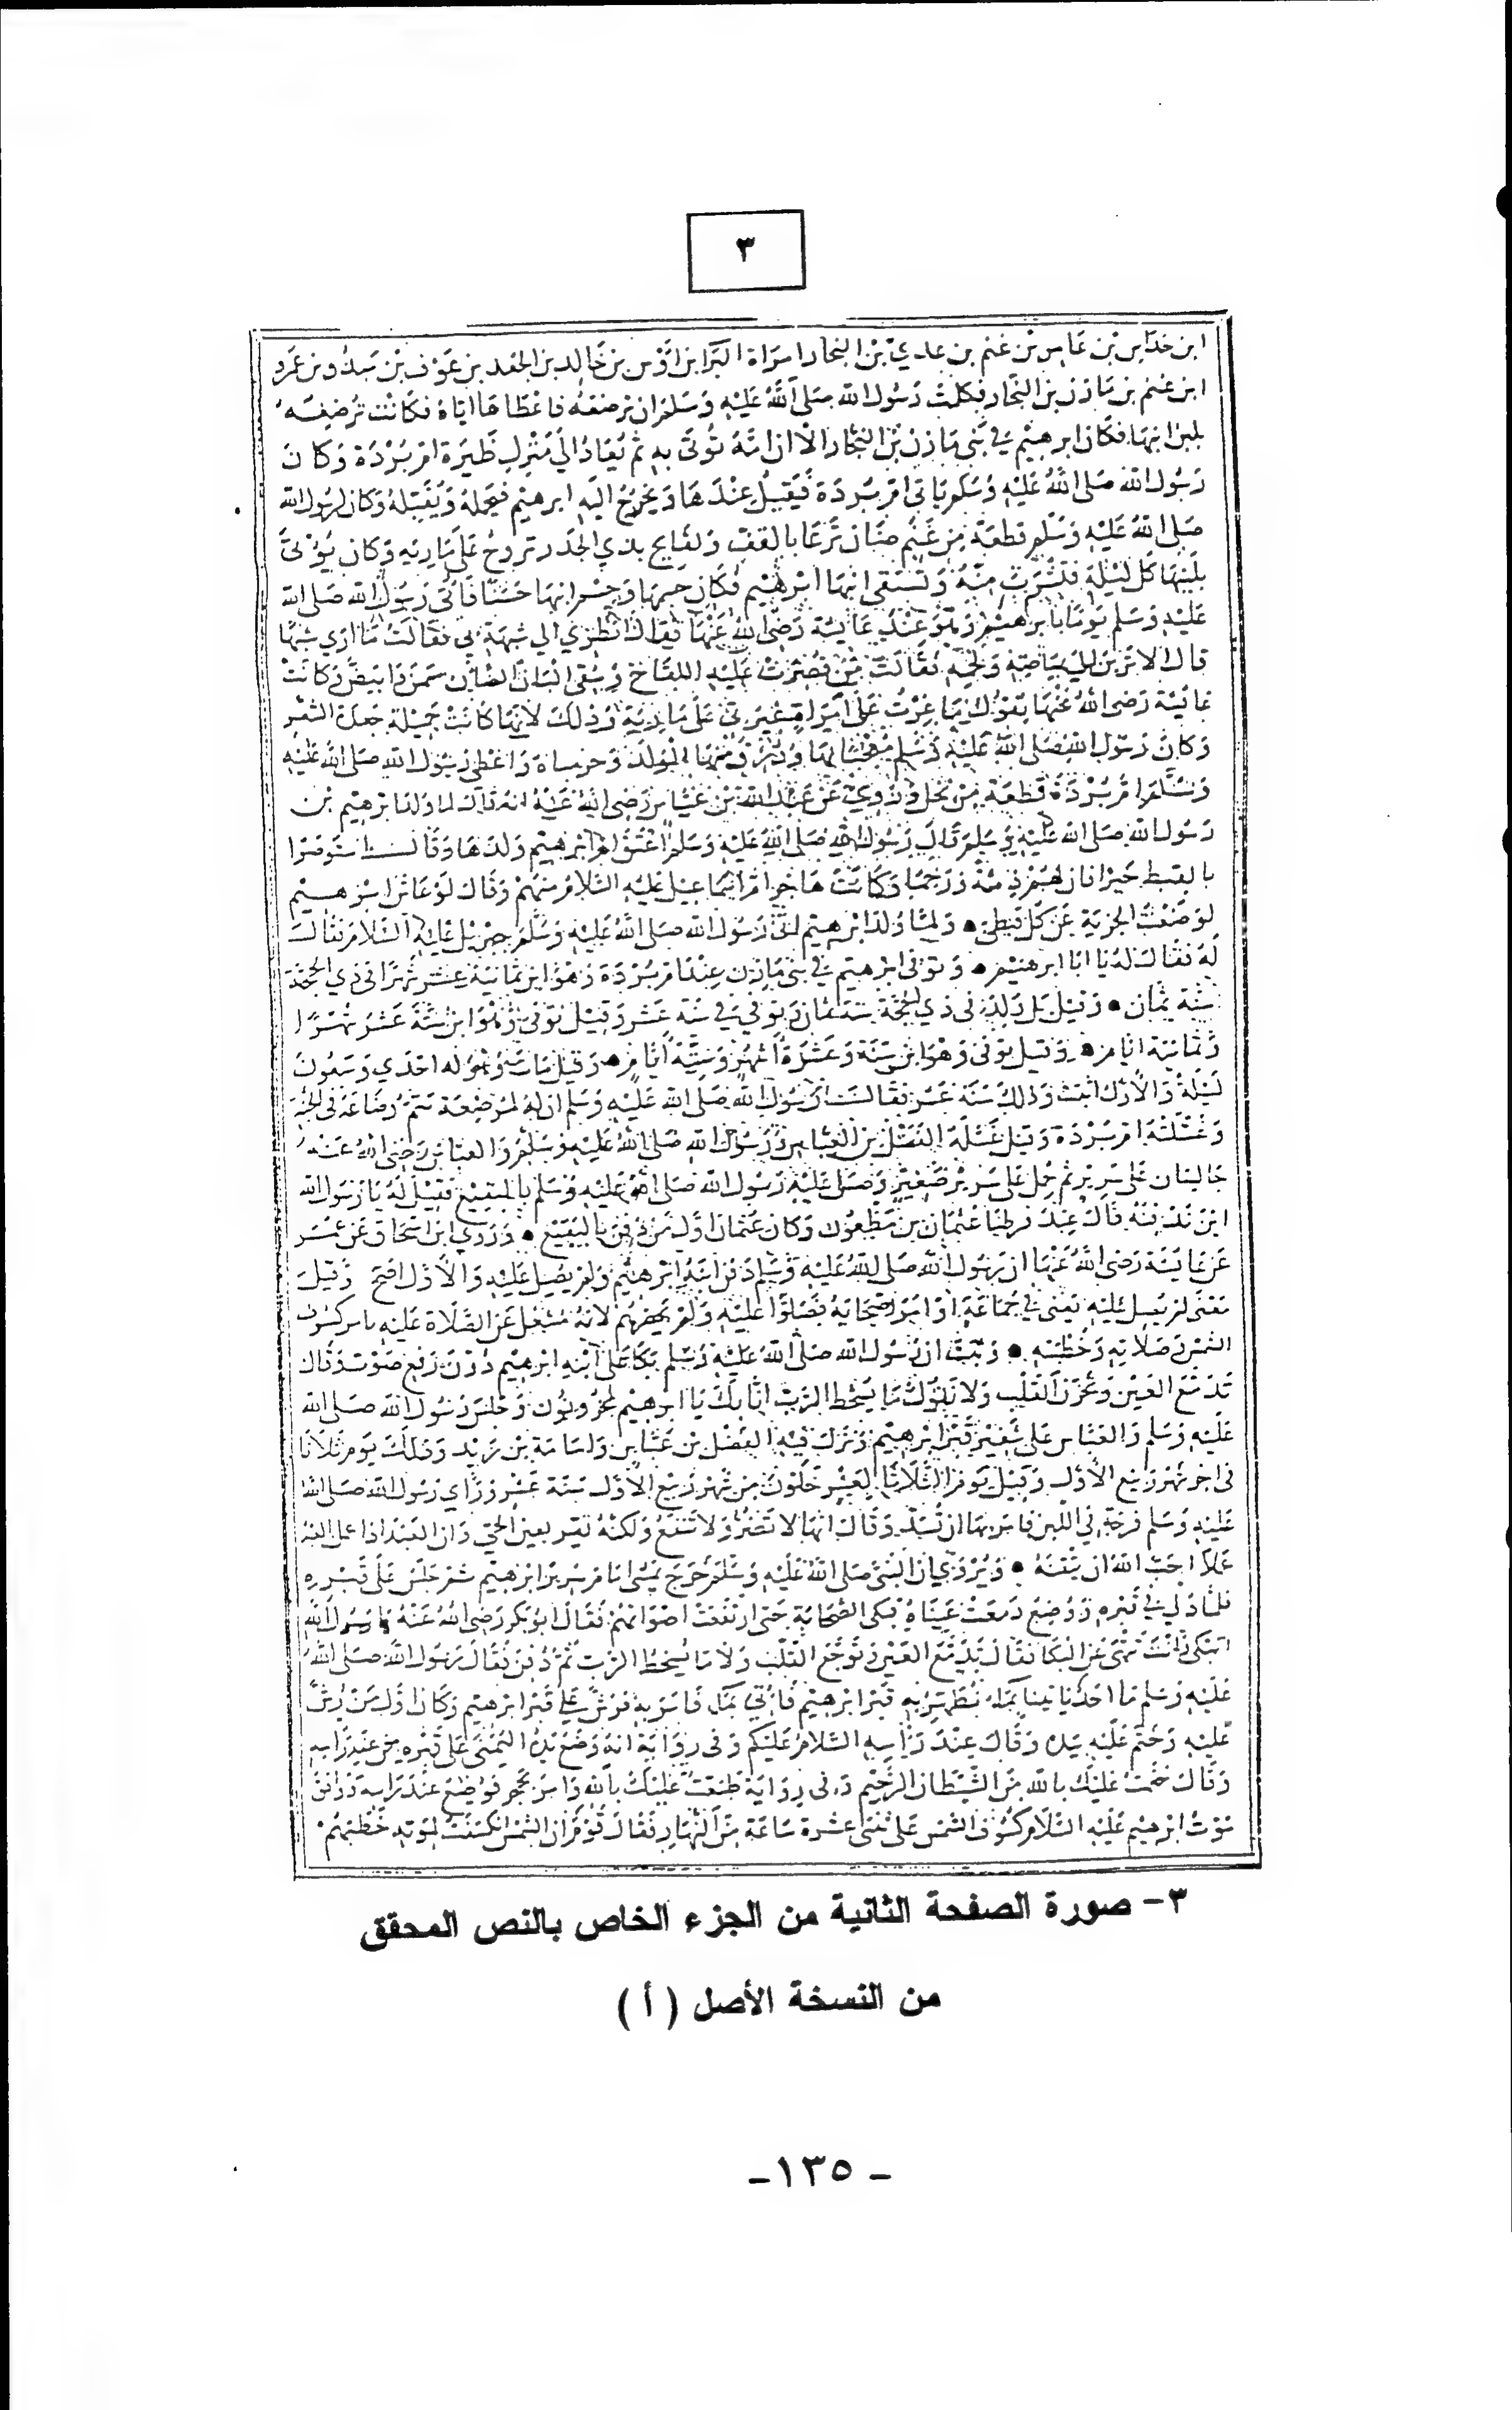 ٣
ابن خداش بن عامر بن غنم بن عدي بن النجار امراة البرا بن اوس بن خالد بن الجعد بن عوف بن مبذول بن عمرو
ابن غنم بن مازن بن النجار فكلمت رسول الله صلى الله عليه وسلم ان ترضعه فاعطاها اياه فكانت ترضعه
بلبن ابنها فكان ابرهيم في بني مازن بن النجار الا ان امه تؤتى به ثم يعاد الى منزل ظيره ام بردة وكان
رسول الله صلى الله عليه وسلم ياتي ام بردة فيقيل عندها ويخرج اليه ابرهيم فيحمله ويقبله وكان لرسول الله
صلى الله عليه وسلم قطعة من غنم ضان ترعا بالقف ولقايح بذي الجدر تروح على ماريه وكان يؤتى
بلبنها كل ليلة فتشرب منه وتسقي ابنها ابرهيم فكان جسمها وجسم ابنها حسنا فاتى رسول الله صلى الله
عليه وسلم يوما بابرهيم وهو عند عايشة رضى الله عنها فقال انظري الي شبهه بي فقالت ما اري شبها
قال الا ترين الي بياضه ولحمه فقالت من قصرت عليه اللقاح وسقى البان الضان سمن وابيض وكانت
عائيشة رضى الله عنها تقول ما غرت على امراة غيرتي على مارية وذلك لانها كانت جميلة جعدة الشعر
وكان رسول الله صلى الله عليه وسلم معجبا بها ورزق منها الولد وحرمناه واعطى رسول الله صلى الله عليه
وسلم ام بردة قطعة من نخل وروي عن عبد الله بن عباس رضى الله عنه انه قال لما ولد ابرهيم بن
رسول الله صلى الله عليه وسلم قال رسول الله صلى الله عليه وسلم اعتق ام ابرهيم ولدها وقال استوصوا
بالقبط خيرا فان لهم ذمة ورحما وكانت هاجر ام اسماعيل عليه السلام منهم وقال لو عاش ابرهيم
لوضعت الجزية عن كل قبطي • ولما ولد ابرهيم اتى رسول الله صلى الله عليه وسلم جبريل عليه السلام فقال
له فقال له يا ابا ابرهيم • وتوفى ابرهيم في بني مازن عند ام بردة وهو ابن ثمانية عشر شهرا في ذي الحجة
سنة ثمان • وقيل بل ولد في ذي الحجة سنة ثمان وتوفي في سنة عشر وقيل توفى وهو ابن ستة عشر شهرا
وثمانية ايام • وقيل توفى وهو ابن سنة وعشرة اشهر وستة ايام • وقيل مات وهو له احدي وسبعون
ليلة والاول اثبت وذلك سنة عشر فقال رسول الله صلى الله عليه وسلم ان له لمرضعة تتم رضاعه في الجنة
وغسلته ام بردة وقيل غسله الفضل بن العباس ورسول الله صلى الله عليه وسلم والعباس رضى الله عنه
جالسان على سرير ثم حمل على سرير صغير وصلى عليه رسول الله صلى الله عليه وسلم بالبقيع فقيل له يا رسول الله
اين ندفنه قال عند فرطنا عثمان بن مظعون وكان عثمان اول من دفن بالبقيع • وروي ابن اسحاق عن عمر
عن عايشة رضى الله عنها ان رسول الله صلى الله عليه وسلم دفن ابنه ابرهيم ولم يصل عليه والاول اصح وقيل
معنى لم يصل عليه يعني في جماعة او امر اصحابه فصلوا عليه ولم يحضرهم لانه مشتغل عن الصلاة عليه بامر كسوف
الشمس وصلاته وخطبته • وثبت ان رسول الله صلى الله عليه وسلم بكا على ابنه ابرهيم دون رفع صوت وقال
تدمع العين ويحزن القلب ولا نقول ما يسخط الرب انا بك يا ابرهيم لمحزونون وجلس رسول الله صلى الله
عليه وسلم والعباس على شفير قبر ابرهيم ونزل فيه الفضل بن عباس واسامة بن زيد وذلك يوم ثلاثا
في اخر شهر ربيع الاول وقيل يوم الثلاثا لعشر خلون من شهر ربيع الاول سنة عشر وراي رسول الله صلى الله
عليه وسلم فرجة في اللبن فامر بها ان تسد وقال انها لا تضر ولا تنفع ولكنه تقر بعين الحي وان العبد اذا عمل
عملا احب الله ان يتقنه • ويروي ان النبي صلى الله عليه وسلم خرج يمشى امام سرير ابرهيم ثم جلس على قبره
فلما دلي في قبره ووضع دمعت عيناه فبكى الصحابة حتى ارتفعت اصواتهم فقال ابو بكر رضى الله عنه يا رسول الله
اتبكي وانت تنهى عن البكا فقال تدمع العين وتوجع القلب ولا ما يسخط الرب ثم دفن فقال رسول الله صلى الله
عليه وسلم ما احد ياتينا بماء نطهر به قبر ابرهيم فأتي بماء فامر به فرش على قبر ابرهيم وكان اول من رش
عليه وختم عليه بيده وقال عند رأسه السلام عليكم وفى رواية انه وضع يده اليمنى على قبره من عند رأسه
وقال ختمت عليك بالله من الشيطان الرجيم وفى رواية طبعت عليك بالله وامر بحجر فوضع عند راسه ووافق
موت ابرهيم عليه السلام كسوف الشمس على ثنتى عشرة ساعة من النهار فقال قوم ان الشمس انكسفت لموته خطبهم
٣- صورة الصفحة الثانية من الجزء الخاص بالنص المحقق
من النسخة الأصل ( أ )
- ١٣٥-